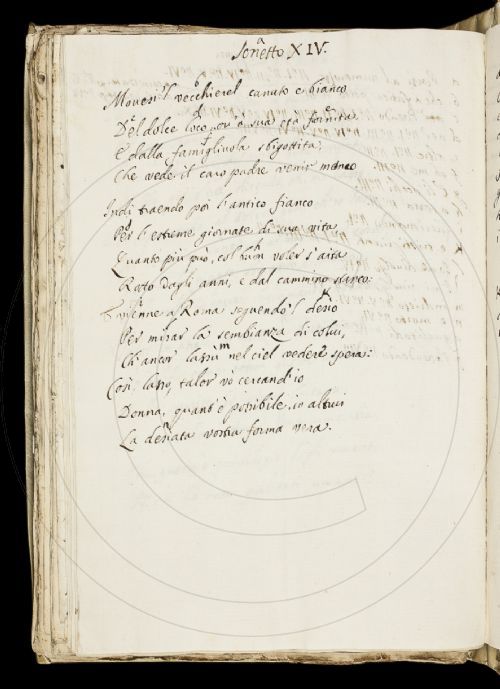 Sonetto XIV.
Movesi 'l vecchierel canuto e bianco
Del dolce loco, ov' à sua età fornita
E dalla famigliuola sbigottita,
Che vede il caro padre venir manco
Indi traendo poi l'antico fianco
Per l'estreme giornate di sua vita
Quanto più può, col buon voler s'aita
Rotto dagli anni, e dal cammino stanco:
E viene a Roma seguendo 'l desio
Per mirar la sembianza di colui,
Ch'ancor lassù nel ciel vedere spera:
Così, lasso, talor vò cercand'io
Donna, quant'è possibile, in altrui
La desiata vostra forma vera.